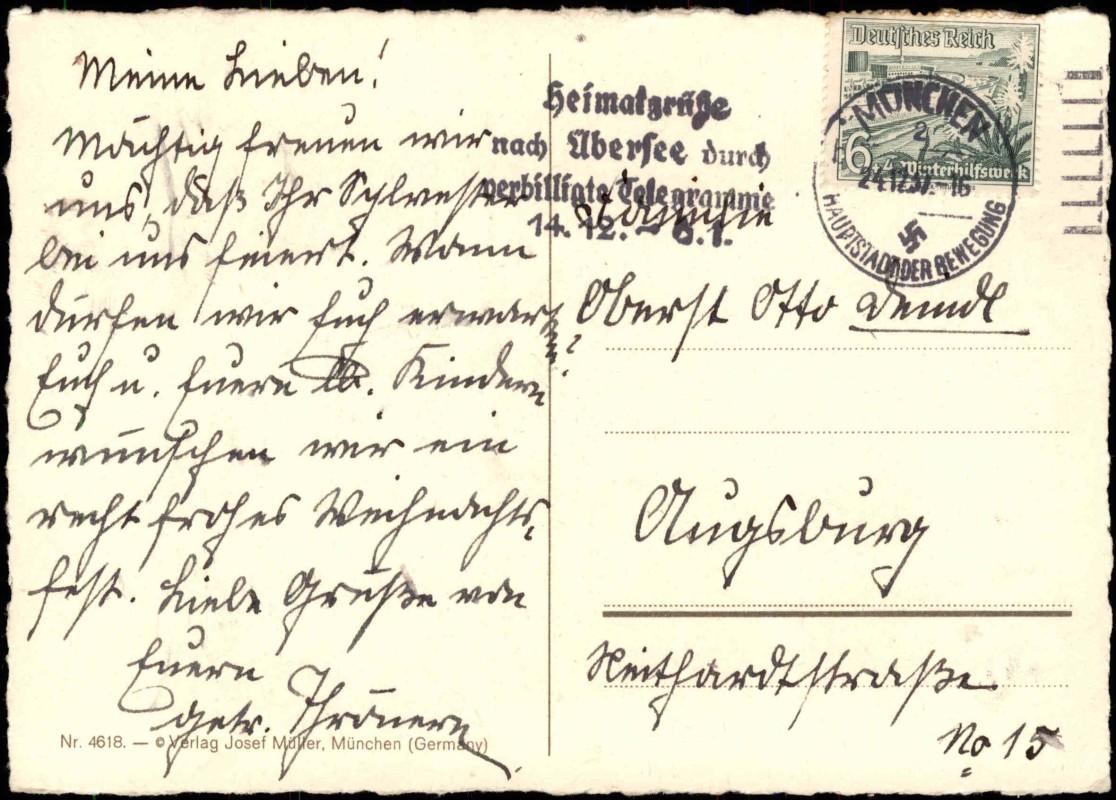 Meine Lieben!
Mächtig freuen wir
uns, daß Ihr Sylvester
bei uns feiert. Wann
dürfen wir Euch erwarten?
Euch u. Euern lb. Kindern
wünschen wir ein
recht frohes Weihnachts-
fest. Liebe Grüße von
Euern
getr.
Nr. 4618. — © Verlag Josef Müller, München (Germany)
Heimatgrüße
nach Übersee durch
verbilligte Telegramme
14. 12. – 6. 1.
Deutsches Reich
6
Winterhilfswerk
MÜNCHEN
2
24.12.37. 16
HAUPTSTADT DER BEWEGUNG
Familie
Oberst Otto Deindl
Augsburg
Neithardtstraße
No 15